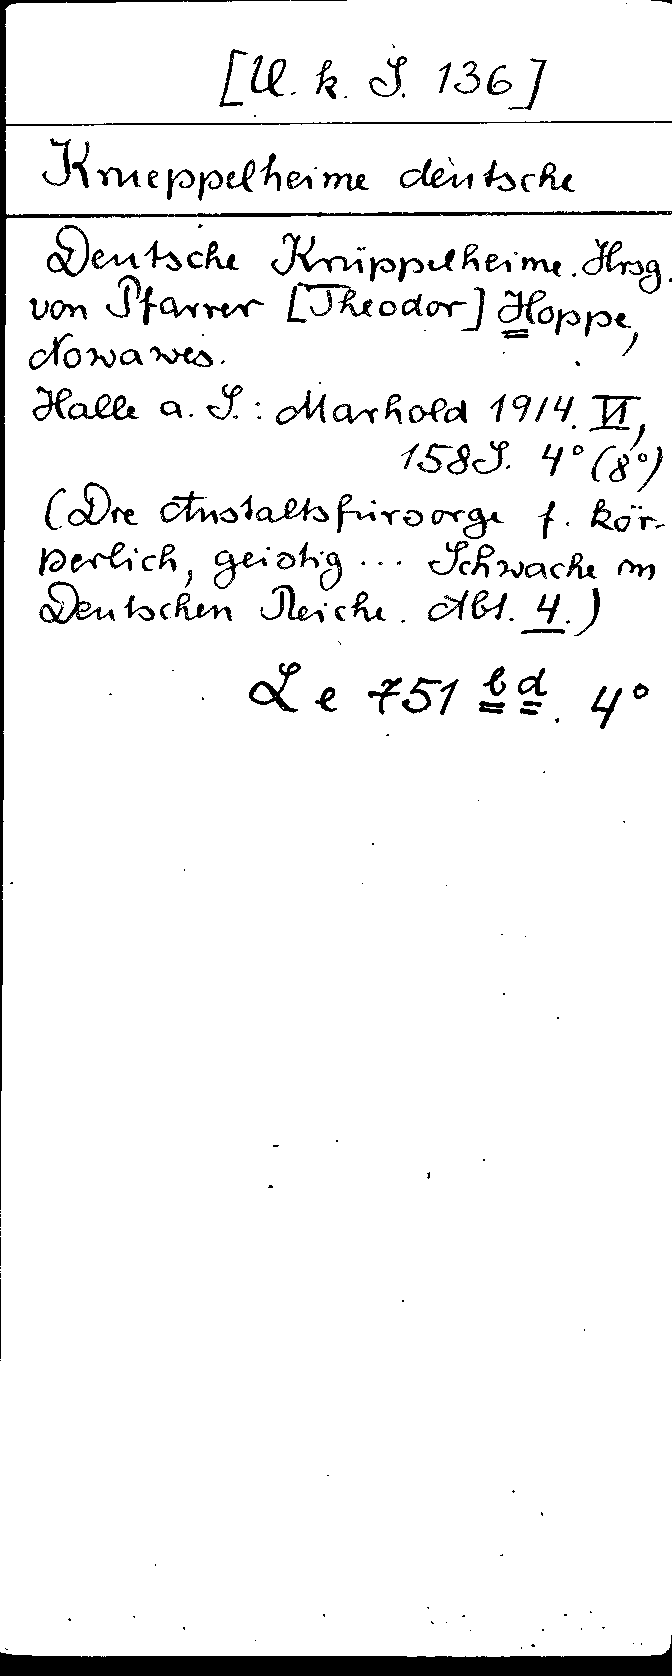 [U. k. S. 136]
Krueppelheime deutsche
Deutsche Krüppelheime. Hrsg.
von Pfarrer [Theodor] Hoppe,
Nowawes.
Halle a. S.: Marhold 1914. VI,
158 S. 4° (8°)
(Die Anstaltsfürsorge f. kör-
perlich, geistig ... Schwache im
Deutschen Reiche. Abt. 4.)
Le 751 bd. 4°